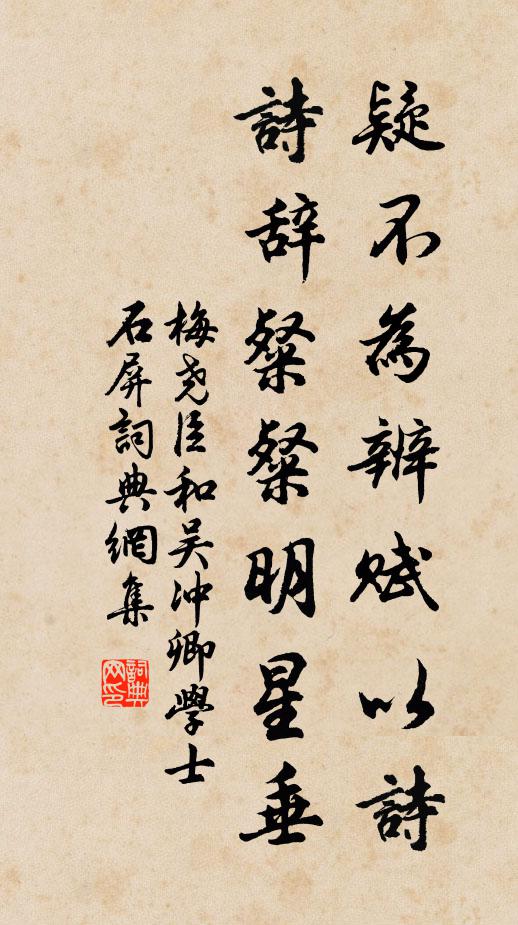 疑不為辨賦以詩
詩辞粲粲明星垂
梅尧臣和吴冲卿學士
石屏詞典網集
詞典网印